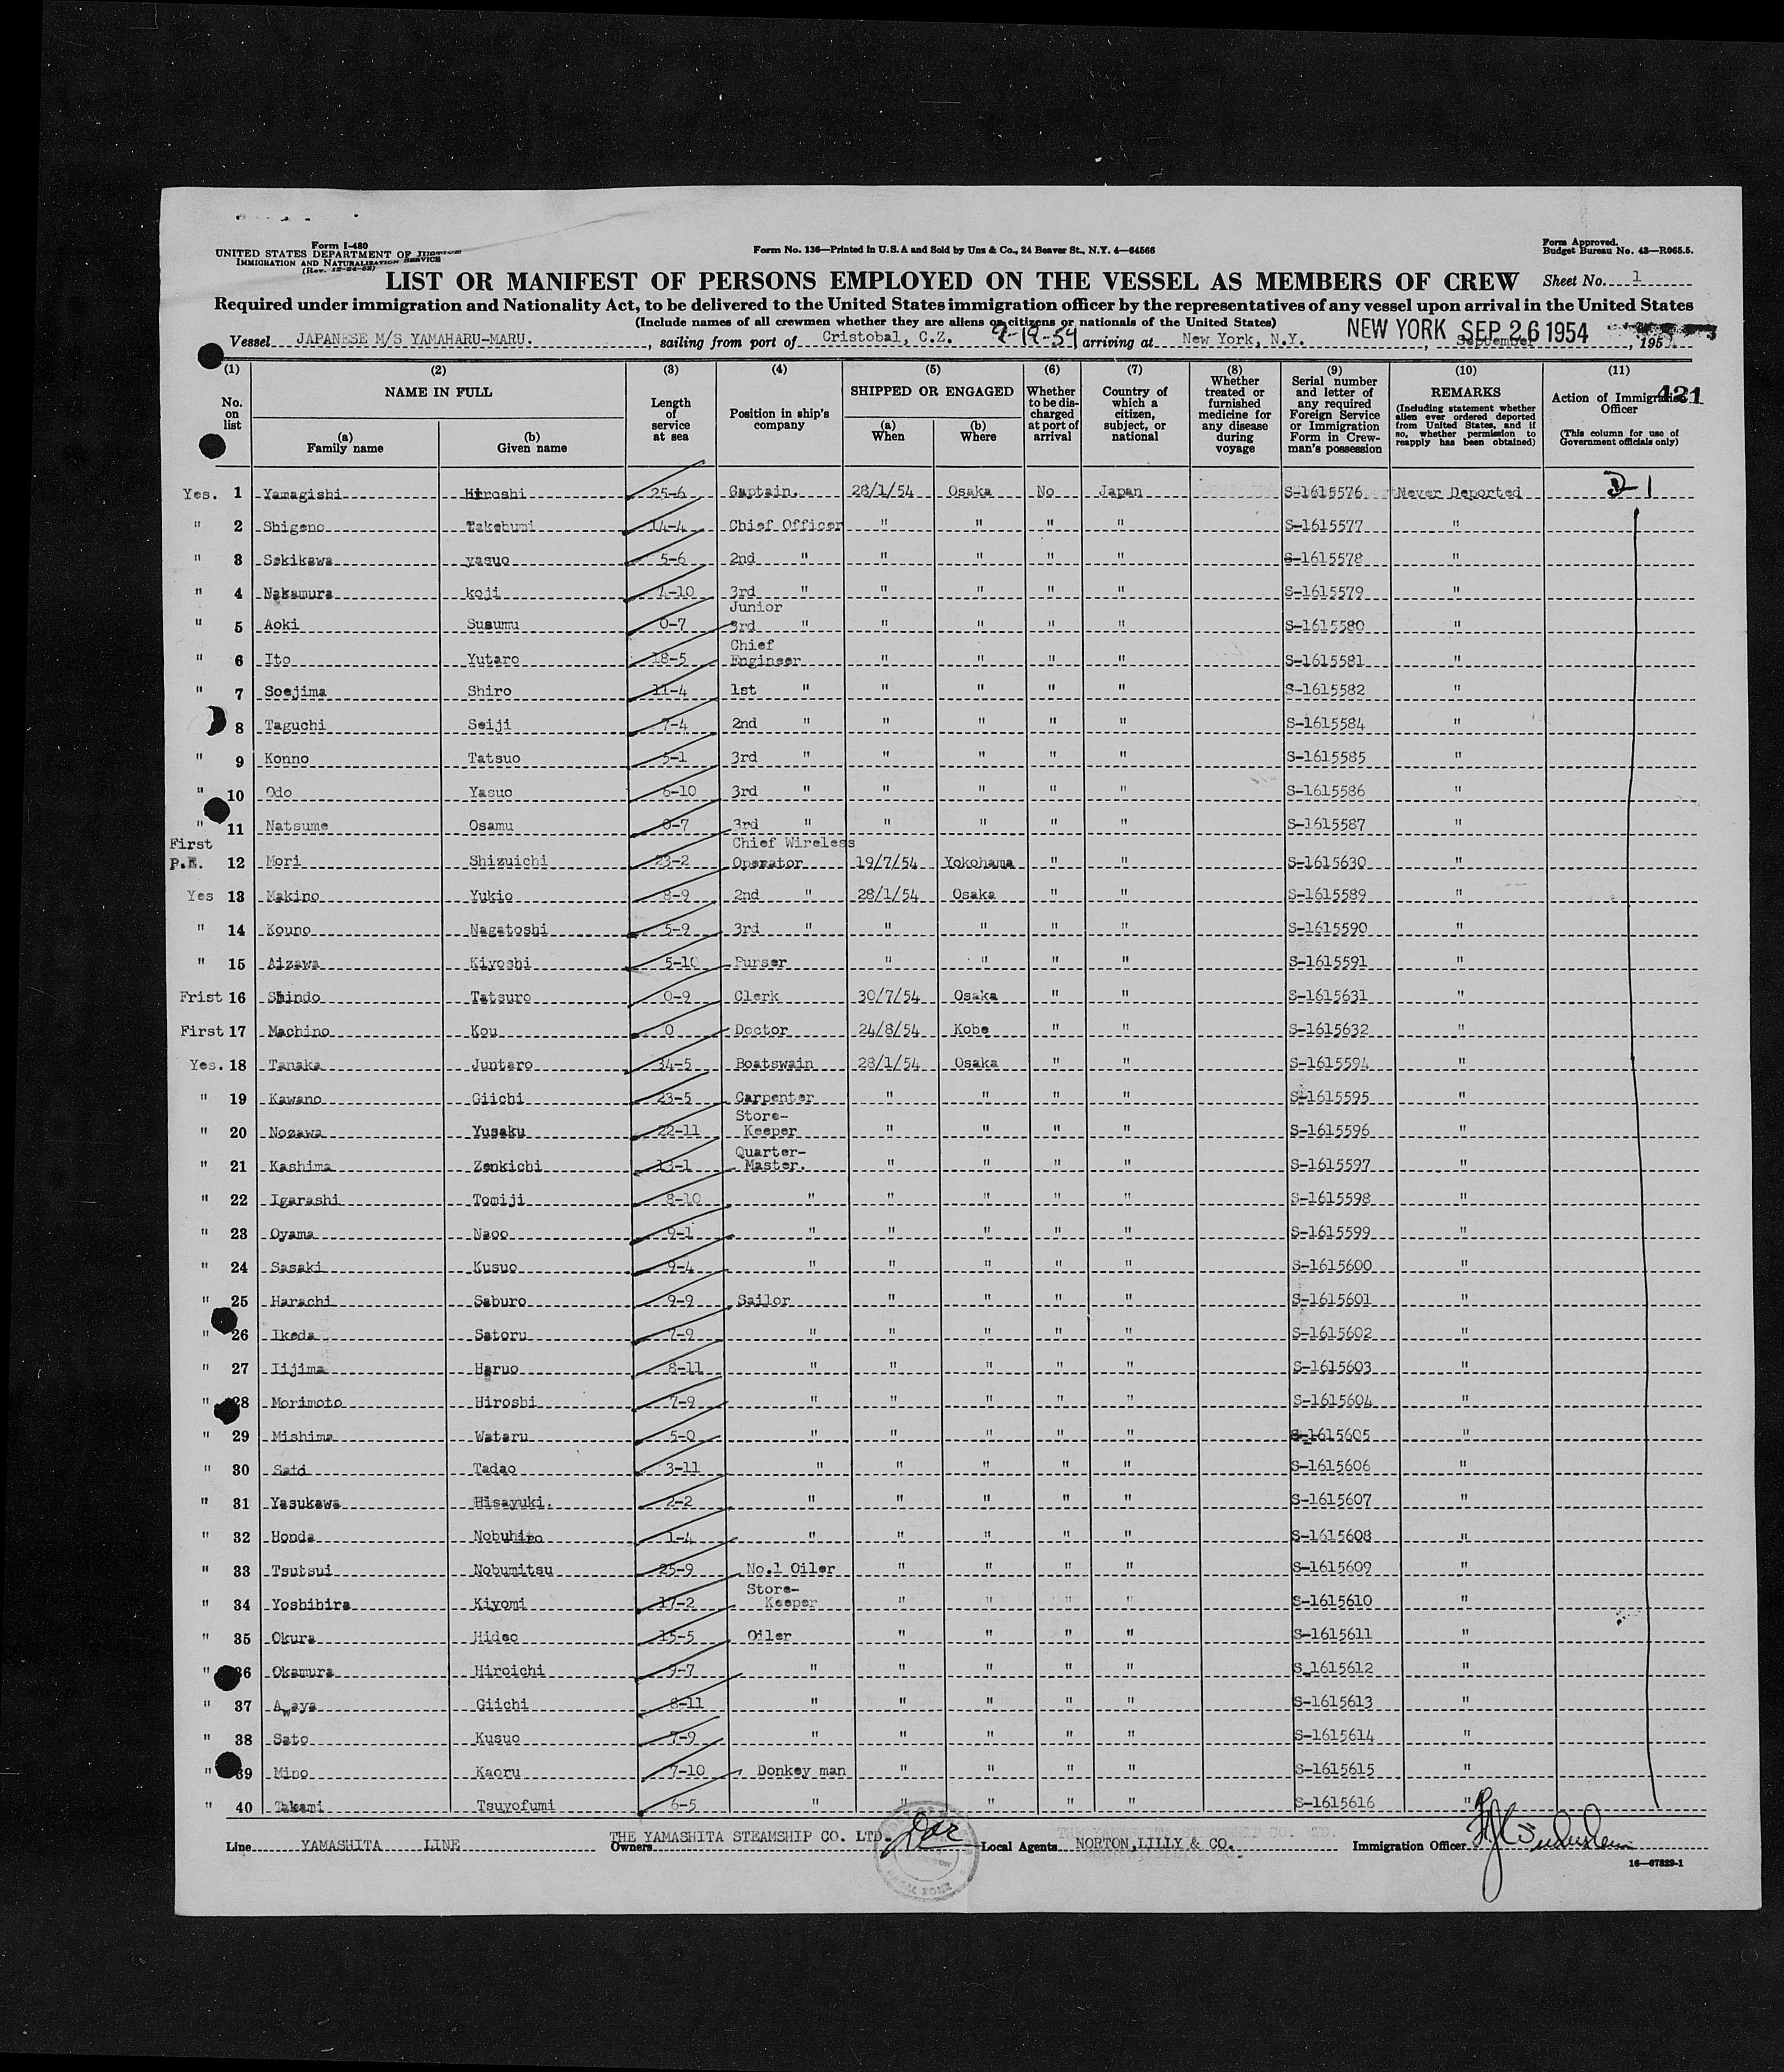 Form I-480
UNITED STATES DEPARTMENT OF JUSTICE
IMMIGRATION AND NATURALIZATION SERVICE
(Rev. 12-24-52)
Form No. 136—Printed in U.S.A and Sold by Unz & Co., 24 Beaver St., N.Y. 4—64566
Form Approved.
Budget Bureau No. 43—R065.5.
LIST OR MANIFEST OF PERSONS EMPLOYED ON THE VESSEL AS MEMBERS OF CREW
Sheet No. 1
Required under immigration and Nationality Act, to be delivered to the United States immigration officer by the representatives of any vessel upon arrival in the United States
(Include names of all crewmen whether they are aliens or citizens or nationals of the United States)
NEW YORK SEP 26 1954
Vessel JAPANESE M/S YAMAHARU-MARU. , sailing from port of Cristobal, C.Z. 9-19-54 arriving at New York, N.Y. , September , 195
(1) (2) (3) (4) (5) (6) (7) (8) (9) (10) (11)
No. on list
NAME IN FULL
(a) Family name
(b) Given name
Length of service at sea
Position in ship's company
SHIPPED OR ENGAGED
(a) When
(b) Where
Whether to be discharged at port of arrival
Country of which a citizen, subject, or national
Whether treated or furnished medicine for any disease during voyage
Serial number and letter of any required Foreign Service or Immigration Form in Crewman's possession
REMARKS
(Including statement whether alien ever ordered deported from United States, and if so, whether permission to reapply has been obtained)
Action of Immigration Officer
421
(This column for use of Government officials only)
Yes. 1 Yamagishi Hiroshi 25-6 Captain. 28/1/54 Osaka No Japan S-1615576 Never Deported D-1
" 2 Shigeno Takebumi 14-4 Chief Officer " " " " S-1615577 "
" 3 Sekikawa yasuo 5-6 2nd " " " " " S-1615578 "
" 4 Nakamura koji 4-10 3rd " " " " " S-1615579 "
" 5 Aoki Susumu 0-7 Junior 3rd " " " " " S-1615580 "
" 6 Ito Yutaro 18-5 Chief Engineer " " " " S-1615581 "
" 7 Soejima Shiro 11-4 1st " " " " " S-1615582 "
8 Taguchi Seiji 7-4 2nd " " " " " S-1615584 "
" 9 Konno Tatsuo 5-1 3rd " " " " " S-1615585 "
" 10 Odo Yasuo 6-10 3rd " " " " " S-1615586 "
" 11 Natsume Osamu 0-7 3rd " " " " " S-1615587 "
First P.E. 12 Mori Shizuichi 23-2 Chief Wireless Operator 19/7/54 Yokohama " " S-1615630 "
Yes 13 Makino Yukio 8-9 2nd " 28/1/54 Osaka " " S-1615589 "
" 14 Kouno Nagatoshi 5-9 3rd " " " " " S-1615590 "
" 15 Aizawa Kiyoshi 5-10 Purser " " " " S-1615591 "
Frist 16 Shindo Tatsuro 0-9 Clerk 30/7/54 Osaka " " S-1615631 "
First 17 Machino Kou 0 Doctor 24/8/54 Kobe " " S-1615632 "
Yes. 18 Tanaka Juntaro 34-5 Boatswain 28/1/54 Osaka " " S-1615594 "
" 19 Kawano Giichi 23-5 Carpenter " " " " S-1615595 "
" 20 Nozawa Yusaku 22-11 Store-Keeper " " " " S-1615596 "
" 21 Kashima Zenkichi 13-1 Quarter-Master. " " " " S-1615597 "
" 22 Igarashi Tomiji 8-10 " " " " " S-1615598 "
" 23 Oyama Naoo 9-1 " " " " " S-1615599 "
" 24 Sasaki Kusuo 9-4 " " " " " S-1615600 "
" 25 Harachi Saburo 9-9 Sailor " " " " S-1615601 "
" 26 Ikeda Satoru 7-9 " " " " " S-1615602 "
" 27 Iijima Haruo 8-11 " " " " " S-1615603 "
" 28 Morimoto Hiroshi 7-9 " " " " " S-1615604 "
" 29 Mishima Wataru 5-0 " " " " " S-1615605 "
" 30 Sato Tadao 3-11 " " " " " S-1615606 "
" 31 Yasukawa Hisayuki. 2-2 " " " " " S-1615607 "
" 32 Honda Nobuhiro 1-4 " " " " " S-1615608 "
" 33 Tsutsui Nobumitsu 25-9 No.1 Oiler " " " " S-1615609 "
" 34 Yoshihira Kiyomi 17-2 Store-Keeper " " " " S-1615610 "
" 35 Okura Hideo 15-5 Oiler " " " " S-1615611 "
" 36 Okamura Hiroichi 9-7 " " " " " S_1615612 "
" 37 Awaya Giichi 8-11 " " " " " S-1615613 "
" 38 Sato Kusuo 7-9 " " " " " S-1615614 "
" 39 Mino Kaoru 7-10 Donkey man " " " " S-1615615 "
" 40 Takami Tsuyofumi 6-5 " " " " " S-1615616 "
Line YAMASHITA LINE Owners THE YAMASHITA STEAMSHIP CO. LTD. Local Agents NORTON,LILLY & CO. Immigration Officer
16—67829-1